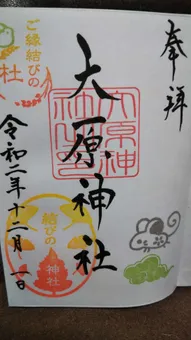 奉拝
大原神社
大原神社
令和二年十二月一日
ご縁結びの
社
結びの
神社